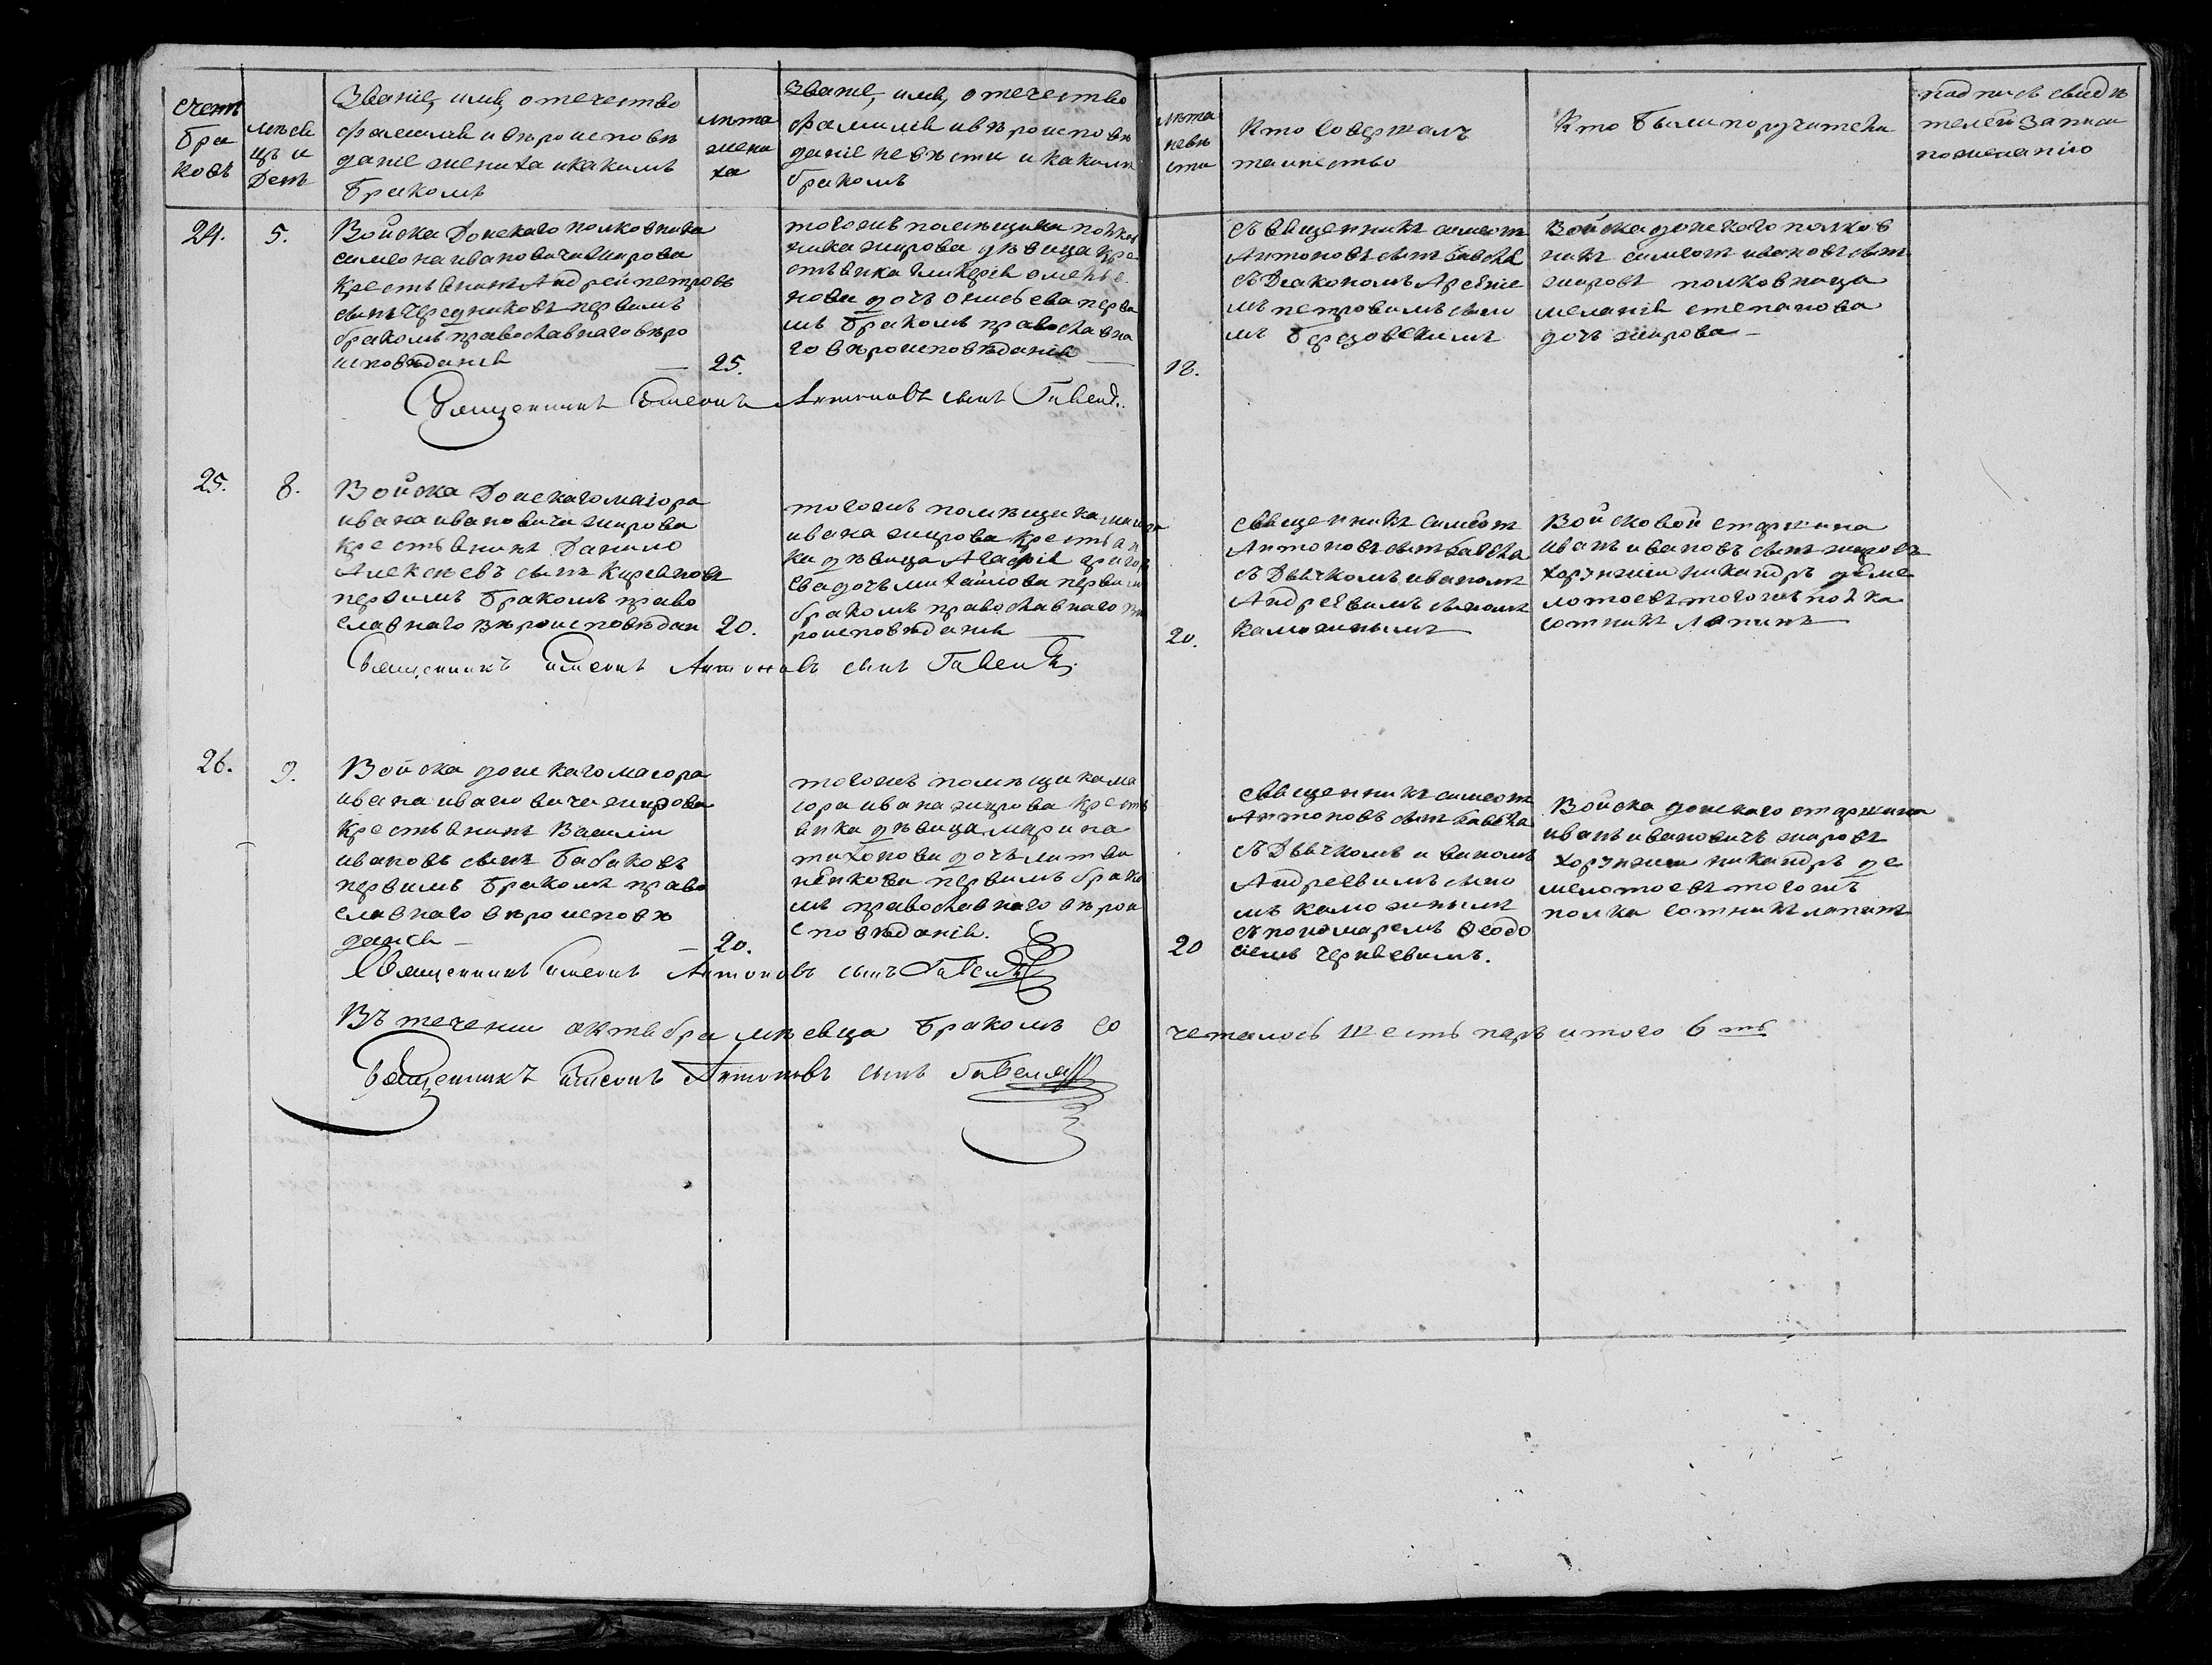 счетъ
бра
ковъ
мѣся
цъ и
день
Званіе, имя, отечество
фамилія и вѣроисповѣ
даніе жениха и какимъ
бракомъ
лѣта
жени
ха
Званіе, имя, отечество
фамилія и вѣроисповѣ
даніе невѣсты и какимъ
бракомъ
лѣта
невѣ
сты
Кто совержалъ
таинство
Кто были поручители
подпись свидѣ
телей записи
по желанію
24.
5.
Войска Донскаго полковника
симеона ивановича жирова
крестьянинъ Андрей петровъ
сынъ Чередниковъ первымъ
бракомъ православнаго вѣро
исповѣданія
25.
тогожъ помѣщика полков
ника жирова дѣвица кре
стьянка гликерія
дочь первы
мъ бракомъ православна
го вѣроисповѣданія
18.
священникъ симеонъ
Антоновъ сынъ
съ Діакономъ Арсеніе
мъ петровымъ сыно
мъ
Войска донскаго полков
никъ симеонъ ивановъ сынъ
жировъ полковница
меланія степанова
дочь жирова
Священникъ Симеонъ Антоновъ сынъ
25.
8.
Войска Донскаго маіора
ивана ивановича жирова
крестьянинъ Данило
Алексѣевъ сынъ
первымъ бракомъ право
славнаго вѣроисповѣдан
20.
тогожъ помѣщика маіора
ивана жирова крестьян
ка дѣвица Агафія
дочь михайлова первым
бракомъ православнаго вѣ
роисповѣданія
20.
священникъ симеонъ
Антоновъ сынъ
съ Дьячкомъ иваномъ
Андреевымъ сыномъ
Калюжнымъ
Войсковой старшина
иванъ ивановъ сынъ жировъ
хорунжій никандръ
тогожъ полка
сотникъ лапинъ
Священникъ Симеонъ Антоновъ сынъ
26.
9.
Войска донскаго маіора
ивана ивановича жирова
крестьянинъ Василій
ивановъ сынъ Бабаковъ
первымъ бракомъ право
славнаго вѣроисповѣ
данія
20.
тогожъ помѣщика ма
іора ивана жирова кресть
янка дѣвица марина
тихонова дочь литви
ненкова первымъ брако
мъ православнаго вѣрои
сповѣданія.
20
священникъ симеонъ
Антоновъ сынъ
съ Дьячкомъ иваномъ
Андреевымъ сыно
мъ калюжнымъ
съ пономаремъ Ѳеодо
сіемъ
Войска донскаго старшина
иванъ ивановичъ жировъ
хорунжій никандръ
тогожъ
полка сотникъ лапинъ
Священникъ Симеонъ Антоновъ сынъ
Въ теченіи октября мѣсяца бракомъ со четалось шесть паръ итого 6 ть
Священникъ Симеонъ Антоновъ сынъ